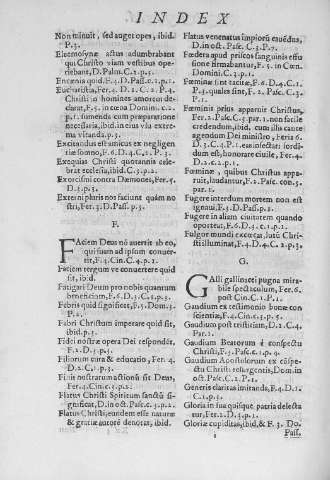 INDEX
Non minuit, sed auget opes, ibid.
P.3.
Eleemosynæ actus adumbrabant
qui Christo viam vestibus ope-
riebant, D. Palm. C.2.p.1.
Encænia quid, F.4. D. Pass. C.1. p.1.
Eucharistia, Fer. 4. D. 1. C. 2. P. 4.
Christi in homines amorem de-
clarat, F.5. in cœna Domini. C.2.
p.1. sumenda cum præparatione
necessaria, ibid. in eius vsu extre-
ma vitanda. p.3.
Excitandus est amicus ex negligen
tiæ somno, F.6. D.4. C.1. P.3.
Exequias Christi quotannis cele-
brat ecclesia, ibid. C.3. p.2.
Exorcismi contra Dæmones, Fer. 4.
D.3. p.3.
Externi pluris nos faciunt quàm no
stri, Fer. 3. D. Pass. p.3.
F.
FAciem Deus nō auertit ab eo,
qui suam ad ipsum conuer-
tit, F.4. Cin. C.4. p.1.
Faciem tergum ve conuertere quid
sit, ibid.
Fatigari Deum pro nobis quantum
beneficium, F.6. D.3. C.1. p.3.
Febris quid significet, F.5. Dom. 3.
P.2.
Fabri Christum imperare quid sit,
ibid. p.3.
Fidei nostræ opera Dei respondēt.
F.2. D.3. p.3.
Filiorum cura & educatio, Fer. 4.
D.2. C.1. p.3.
Finis nostrarum actionū sit Deus,
Fer. 4. Cin. C.3. p.2.
Flatus Christi Spiritum sanctū si-
gnificat, D. in oct. Pasc. c.3. p.2.
Flatus Christi, eundem esse naturæ
& gratiæ autorē denotat, ibid.
Flatus venenatus impiorū cauēdus,
D. in oct. Pasc. C.3. P.7.
Fœdera apud priscos sanguinis effu
sione firmabantur, F.5. in Cœn.
Domini. C.3. p.1.
Fœminæ sint tacitæ, F.6. D.4. C.1.
P.3. quales sint, F.2. Pasc. C.3.
par. 1.
Fœminis prius apparuit Christus,
Fer. 2. Pasc. C.3. par. 1. non facile
credendum, ibid. cum illis caute
agendum Dei ministro, Feria 6.
D.3. C.4. P.1. eas infectari sordi-
dum est, honorare ciuile, Fer. 4.
D.2. C.2. p.1.
Fœminæ, quibus Christus appa-
ruit, laudantur, F.2. Pasc. con. 5.
par. 1.
Fugere interdum mortem non est
ignaui. F.3. D. Pass. p.2.
Fugere in aliam ciuitatem quando
oporteat, F.6. D.5. c.1. p.2.
Fulgor mundi excœcat, lutū Chri-
sti illuminat, F.4. D.4. C.2. p.3.
G.
GAlli gallinacei pugna mirabi-
le spectaculum, Fer. 6.
post Cin. C.1. P.1.
Gaudium ex testimonio bonæ con
scientiæ, F.4. Cin. c.5. p.5.
Gaudium post tristitiam, D.2. C.4.
Par. 1.
Gaudium Beatorum è conspectu
Christi, F.5. Pasc. C.4. p.4.
Gaudium Apostolorum ex cōspe-
ctu Christi resurgentis, Dom. in
oct. Pasc. C.2. P.1.
Generis claritas imitanda, F.4. D.1.
C.1. p.3.
Gloria in sua quisque patria delecta
tur, F.2. D.3. p.1.
Gloriæ cupiditas, ibid. & F.3. Do.
Pass.